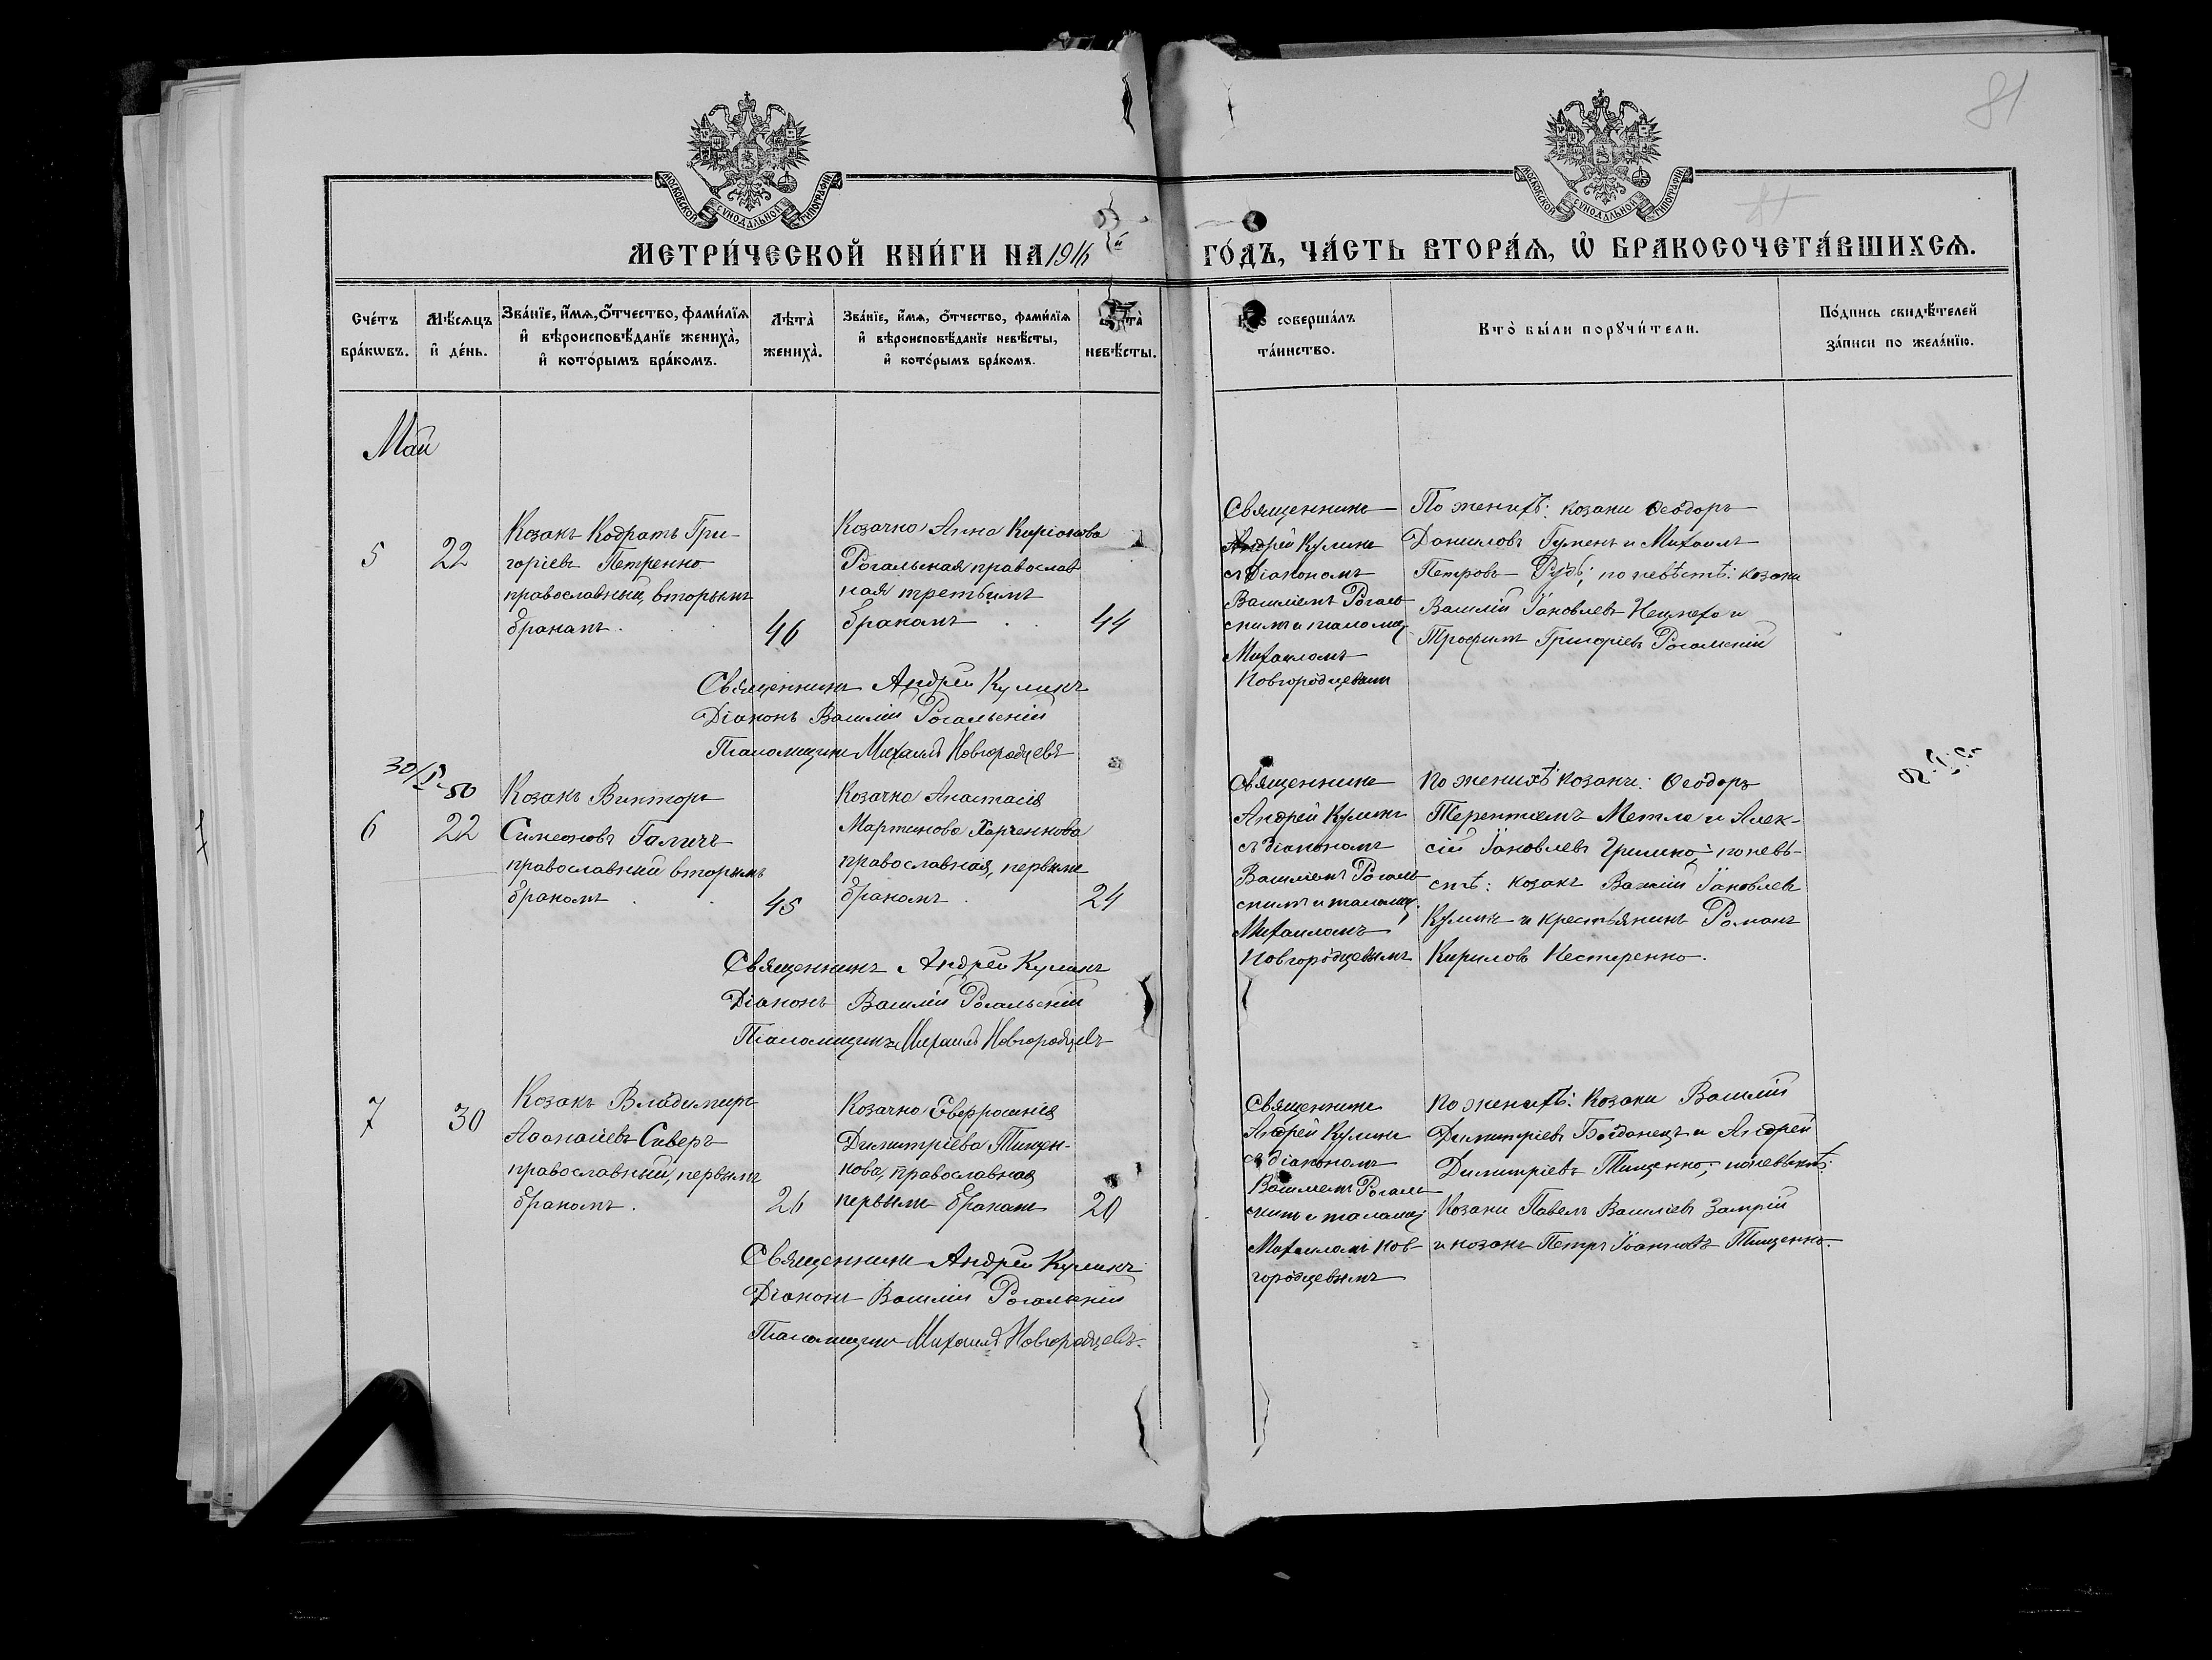 81
МОСКОВСКОЙ СѴНОДАЛЬНОЙ ТИПОГРАФІИ
МОСКОВСКОЙ СѴНОДАЛЬНОЙ ТИПОГРАФІИ
МЕТРИ́ЧЕСКОЙ КНИ́ГИ НА 1916 й ГО́ДЪ, ЧА́СТЬ ВТОРА́Я, Ѡ БРАКОСОЧЕТА́ВШИХСЯ.
Сче́тъ
бра́кѡвъ.
Мѣ́сяцъ
и҆ де́нь.
Зва́нїе, и҆́мя, ѻ҆́тчество, фами́лїя
и҆ вѣроисповѣ́данїе жениха̀,
и҆ кото́рымъ бра́комъ.
Лѣта̀
жениха̀.
Зва́нїе, и҆́мя, ѻ҆́тчество, фами́лїя
и҆ вѣроисповѣ́данїе невѣ́сты,
и҆ кото́рымъ бра́комъ.
невѣ́сты.
соверша́лъ
та́инство.
Кто̀ бы́ли порꙋчи́тели.
По́дпись свидѣ́телей
за́писи по жела́нїю.
Май
5
22
Козакъ Кодратъ Гри-
горіевъ Петренко
православный, вторымъ
бракомъ.
46
Козачка Анна
Рогальская православ
ная третьимъ
бракомъ
44
Священникъ
Андрей Куликъ
съ діакономъ
Василіемъ Рогаль
скимъ и псаломщ.
Михаиломъ
Новгородцевымъ
По женихѣ: козаки Ѳеодоръ
Даниловъ Гуменъ и Михаилъ
Петровъ Рудь; по невѣстѣ: козаки
Василій Іаковлевъ и
Трофимъ Григоріевъ Рогальскій
Священникъ Андрей Куликъ
Діаконъ Василій Рогальскій
Псаломщикъ Михаилъ Новгородцевъ
30/V-50
6
22
Козакъ Викторъ
Симеоновъ Галичъ
православный вторымъ
бракомъ
45
Козачка Анастасія
Мартинова Харченкова
православная, первымъ
бракомъ
24
Священникъ
Андрей Куликъ
съ діакономъ
Василіемъ Рогаль
скимъ и псаломщ.
Михаиломъ
Новгородцевымъ
По женихѣ козаки: Ѳеодоръ
Терентіевъ Метла и Алек-
сій Іаковлевъ Гришко; по невѣ-
стѣ: козакъ Василій Іаковлевъ
Куликъ и крестьянинъ Романъ
Кириловъ Нестеренко.
Священникъ Андрей Куликъ
Діаконъ Василій Рогальскій
Псаломщикъ Михаилъ Новгородцевъ
7
30
Козакъ Владимиръ
Аѳанасіевъ Сиверъ
православный, первымъ
бракомъ.
26
Козачка Евфросинія
Димитріева Тищен-
кова, православная
первымъ бракомъ
20
Священникъ
Андрей Куликъ
съ діакономъ
Василіемъ Рогаль
скимъ и псаломщ
Михаиломъ Нов-
городцевымъ
По женихѣ: козаки Василій
Димитріевъ Богданецъ и Андрей
Димитріевъ Тищенко; по невѣстѣ:
Козаки Павелъ Василіевъ Замрій
и козакъ Петръ Іоанновъ Тищенко.
Священникъ Андрей Куликъ
Діаконъ Василій Рогальскій
Псаломщикъ Михаилъ Новгородцевъ.